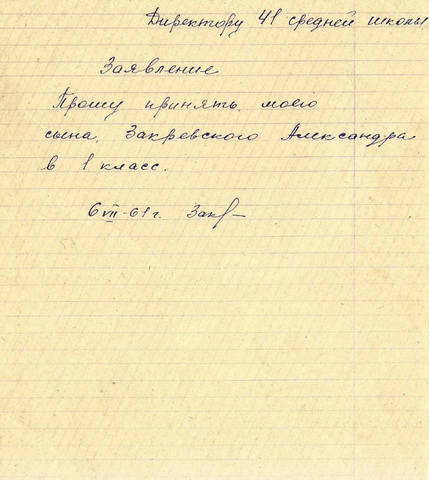 Директору 41 средней школы
Заявление
Прошу принять моего
сына, Закревского Александра
в 1 класс.
6 VII-61 г. Закр